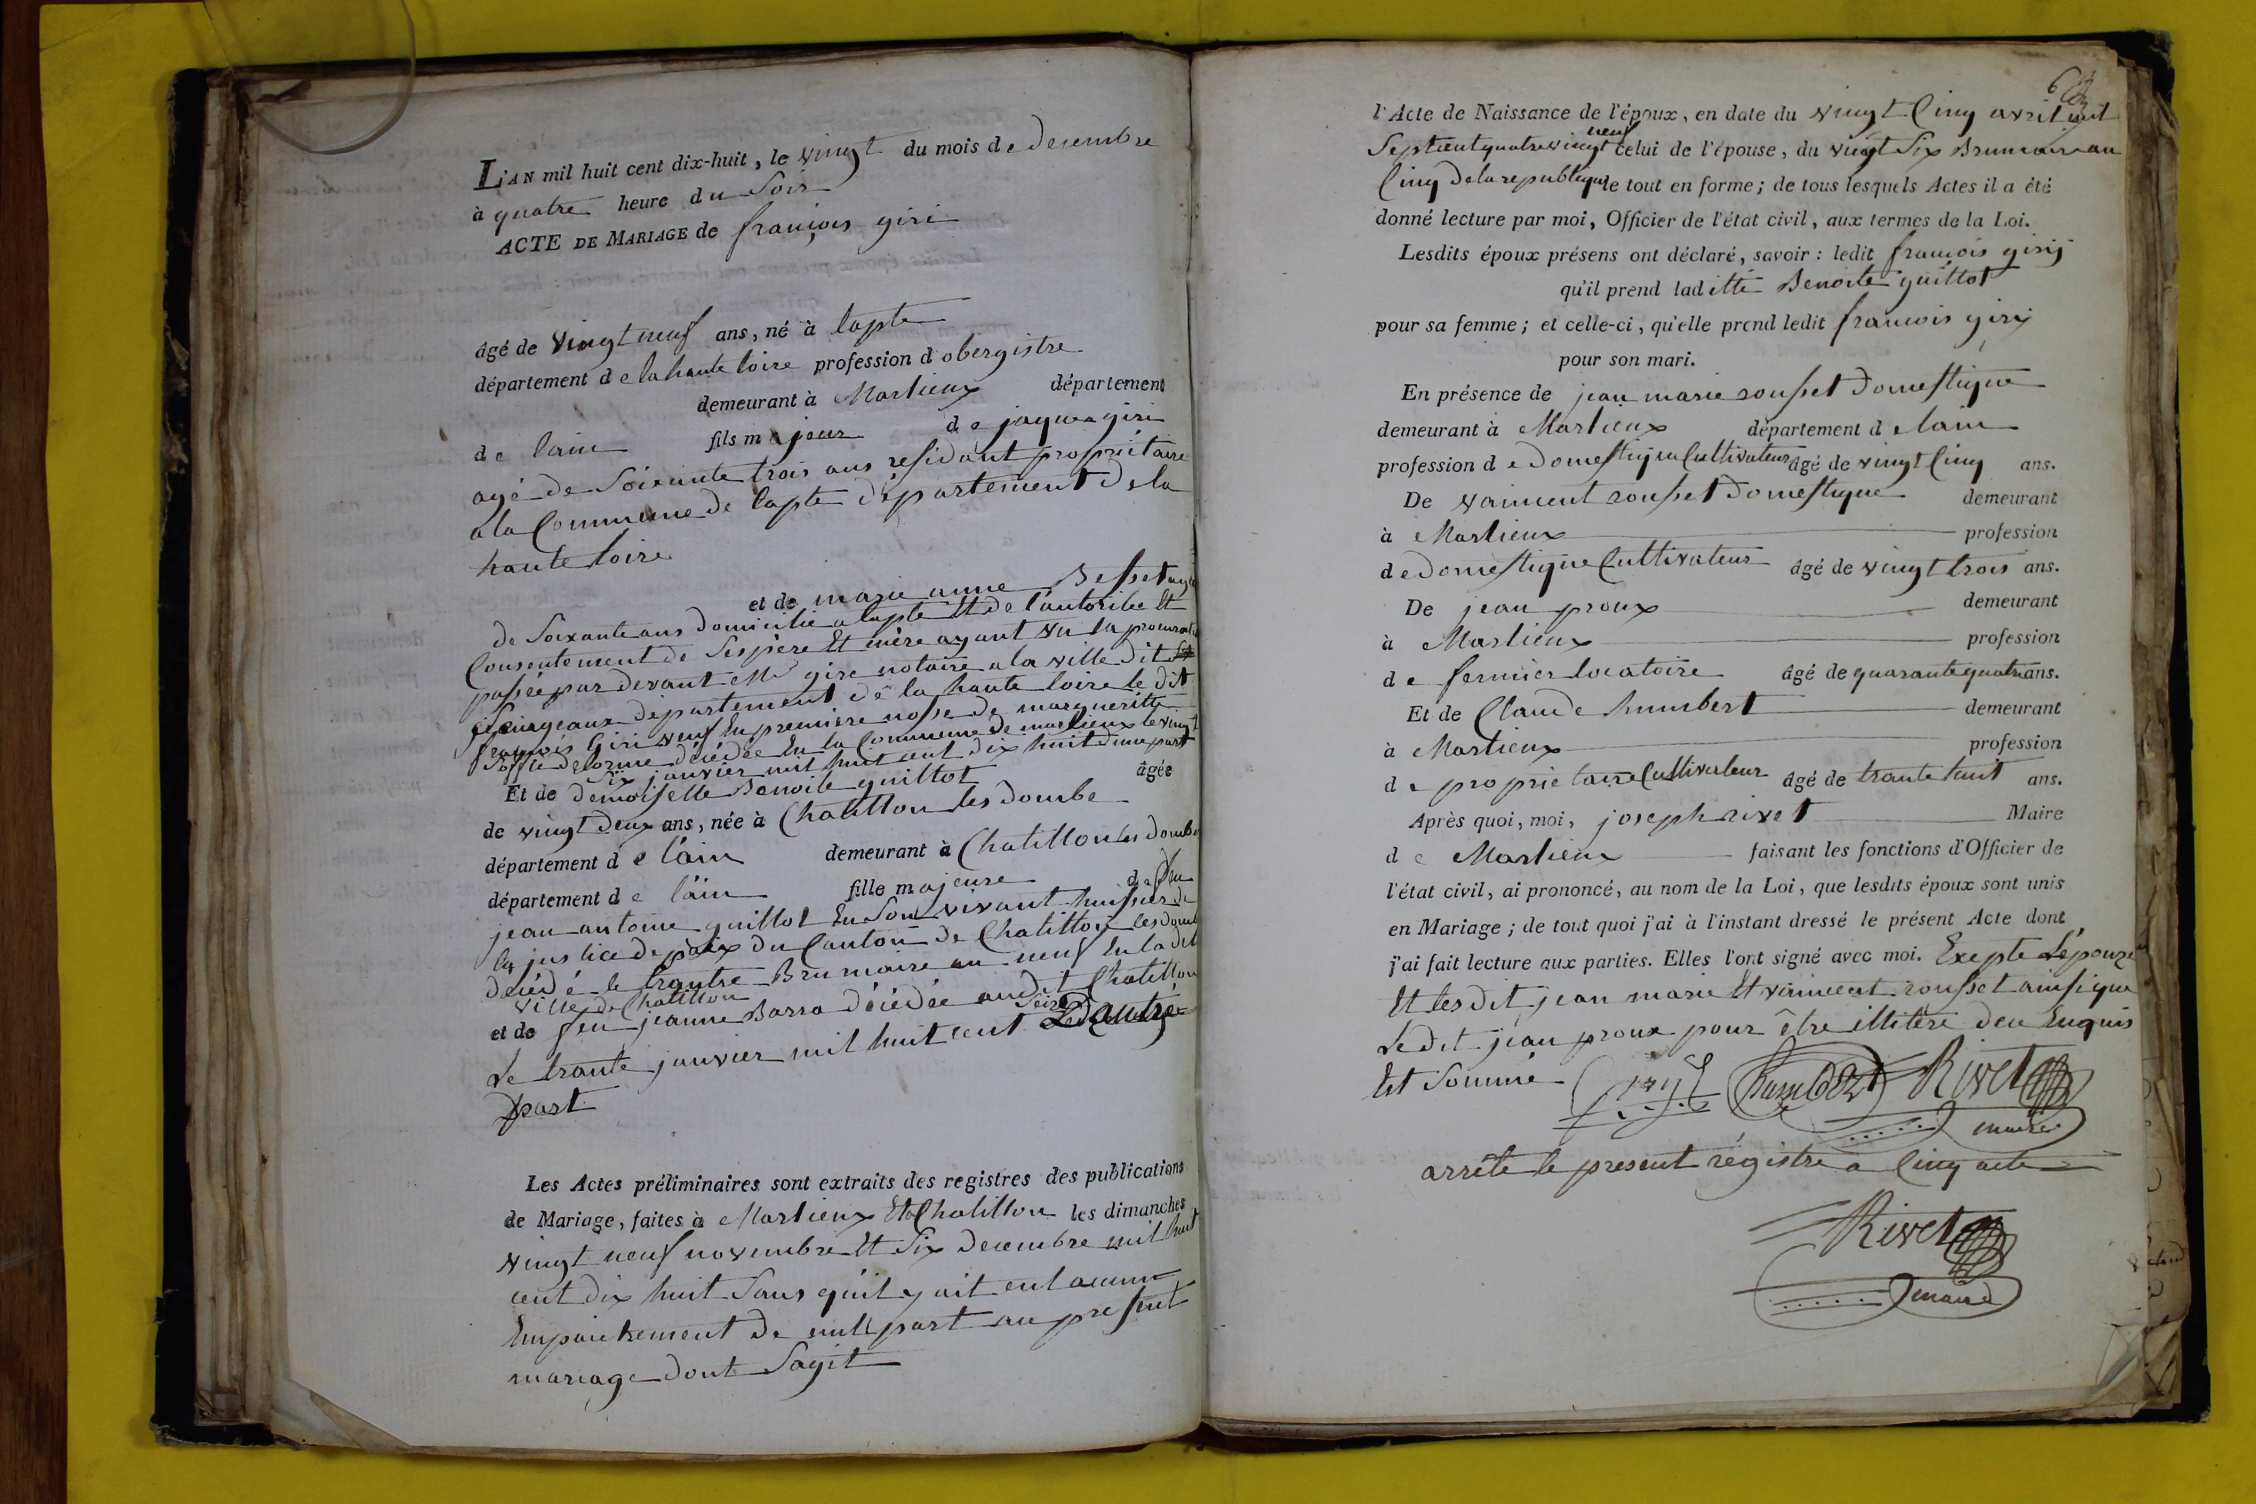 L'AN mil huit cent dix-huit, le vingt du mois de decembre
à quatre heure du Soir
ACTE DE MARIAGE de françois giri
âgé de vingt neuf ans, né à lapte
département de la haute loire profession d obergistre
demeurant à Marlieux département
de lain fils majeur de jaques giri
agé de Soixante trois ans residant propriétaire
a la Commune de lapte département de la
haute loire
et de marie anne Besset agé
de Soixante ans domicilié a lapte Et de l'autorite Et
Consentement de Ses père Et mère ayant vu la procuration
passée par devant Me gire notaire a la ville dit
département de la haute loire le dit
françois Giri veuf En première nosse de margueritte
delorme décédée En la Commune de marlieux le vingt
Six janvier mil huit cent dix huit d'une part
Et de demoiselle Benoite guillot âgée
de vingt deux ans, née à Chatillon les dombe
département de l'ain demeurant à Chatillon les dombe
département de l'ain fille majeure de feu
jean antoine guillot En Son vivant huissier de
la justice de paix du Canton de Chatillon les domb
décédé le trantre Brumaire an neuf En la dit
ville de Chatillon
et de feu jeanne Barra décédée au dit Chatillon
Le trante janvier mil huit cent Seize D'autre
part
Les Actes préliminaires sont extraits des registres des publications
de Mariage, faites à Marlieux Et Chatillon les dimanches
vingt neuf novembre Et Six decembre mil huit
cent dix huit Sans qu'il y ait eut aucun
Empaichement de null part au present
mariage dont Sagit
6
l'Acte de Naissance de l'époux, en date du vingt Cinq avril mil
Septcent quatre vingt neuf celui de l'épouse, du vingt Six Brumaire an
Cinq de la republique le tout en forme; de tous lesquels Actes il a été
donné lecture par moi, Officier de l'état civil, aux termes de la Loi.
Lesdits époux présens ont déclaré, savoir : ledit francois girij
qu'il prend laditte Benoite guillot
pour sa femme; et celle-ci, qu'elle prend ledit francois giri
pour son mari.
En présence de jean marie rousset Domestique
demeurant à Marlieux département de lain
profession de Domestique Cultivateur âgé de vingt Cinq ans.
De vaincent rousset Domestique demeurant
à Marlieux profession
de Domestique Cultivateur âgé de vingt trois ans.
De jean proux demeurant
à Marlieux profession
de fermier locatoire âgé de quarante quatre ans.
Et de Claude humbert demeurant
à Marlieux profession
de propriétaire Cultivateur âgé de trante huit ans.
Après quoi, moi, joseph rivet Maire
de Marlieux faisant les fonctions d'Officier de
l'état civil, ai prononcé, au nom de la Loi, que lesdits époux sont unis
en Mariage; de tout quoi j'ai à l'instant dressé le présent Acte dont
j'ai fait lecture aux parties. Elles l'ont signé avec moi. Exepte Lépouze
Et les dit jean marie Et vaincent rousset ainsi que
Le dit jean proux pour être illitéré deu Enquis
Et Sommé Humbert Rivet
maire
arrête le present régistre a Cinq acte
Rivet
maire